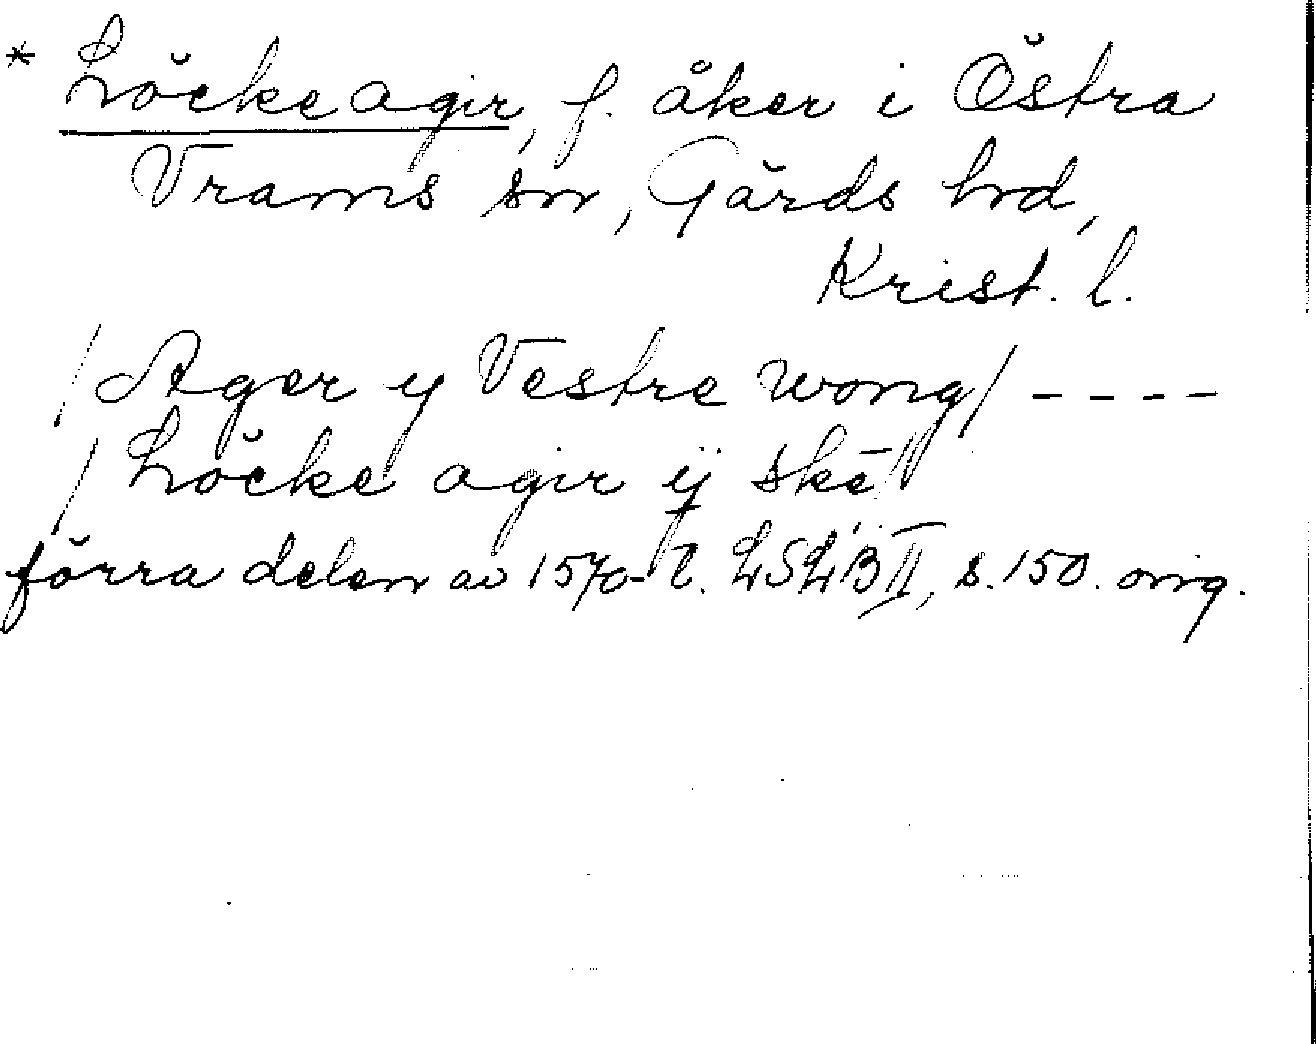 * Löcke agir, f. åker i Östra
Vrams sn, Gärds hrd,
Krist. l.
/ Ager y Vestre wong/ ----
/ Löcke agir ij skē /
förra delen av 1570-t. LSLB II, s. 150. orig.